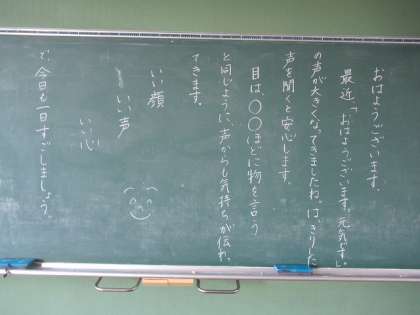 おはようございます。
最近、「おはようございます。元気です。」
の声が大きくなってきましたね。はっきりした
声を聞くと安心します。
目は〇〇ほどに物を言う
と同じように、声からも気持ちが伝わっ
てきます。
いい顔
いい声
いい心
で、今日も一日すごしましょう。